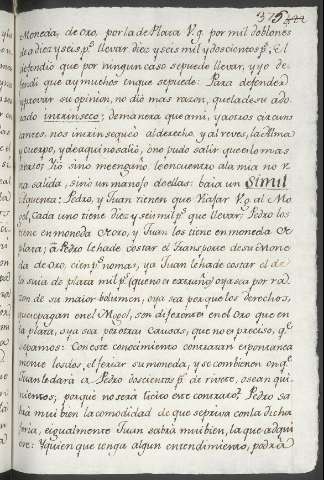 375
Moneda, de oro, por la de Plata V.g. por mil doblones
de a diez y seis p.s llevar diez y seis mil y doscientos p.s, El
defendio que por ningun caso se puede llevar, y yo de-
fendi que ay muchos en que se puede. Para defender
y provar su opinion, no dio mas razon, que la de su ado-
rado intrinseco; de manera que a mi, y a otros circuns-
tantes, nos
y cuerpo, y de aqui no salió, one pudo salir que es lo mas
cierto? Yo sino me engaño, le encuentro a la mia no
una salida, sino un manojo de ellas: baia un Simil
Pedro, y Juan tienen que Viajar V.g. al Mo-
gol, Cada uno tiene diez y seis mil p.s que llevar: Pedro los
tiene en moneda de oro, y Juan los tiene en moneda de
plata; a Pedro le ha de costar el transporte de su Mone-
da de oro, cien p.s no mas, ya Juan le ha de costar el de
la suia de plata mil p.s (que no es extraño) o ya sea por ra-
zon de su maior bolumen, o ya sea por que los derechos,
que pagan en el Mogol, son diferentes en el oro que en
la plata, o ya sea por otras causas, que no es preciso, q.e
sepamos: Con este conocimiento contratan espontanea
mente los dos, el feriar su moneda, y se combienen en q.e
Juan le dará a Pedro doscientos p.s de rivete, o sean qui-
nientos, porque no será licito este contrato? Pedro sa-
brá mui bien la comodidad de que se priva con la dicha
feria, e igualmente Juan sabrá mui bien, la que adqui-
ere: Y quien que tenga algun entendimiento, podria